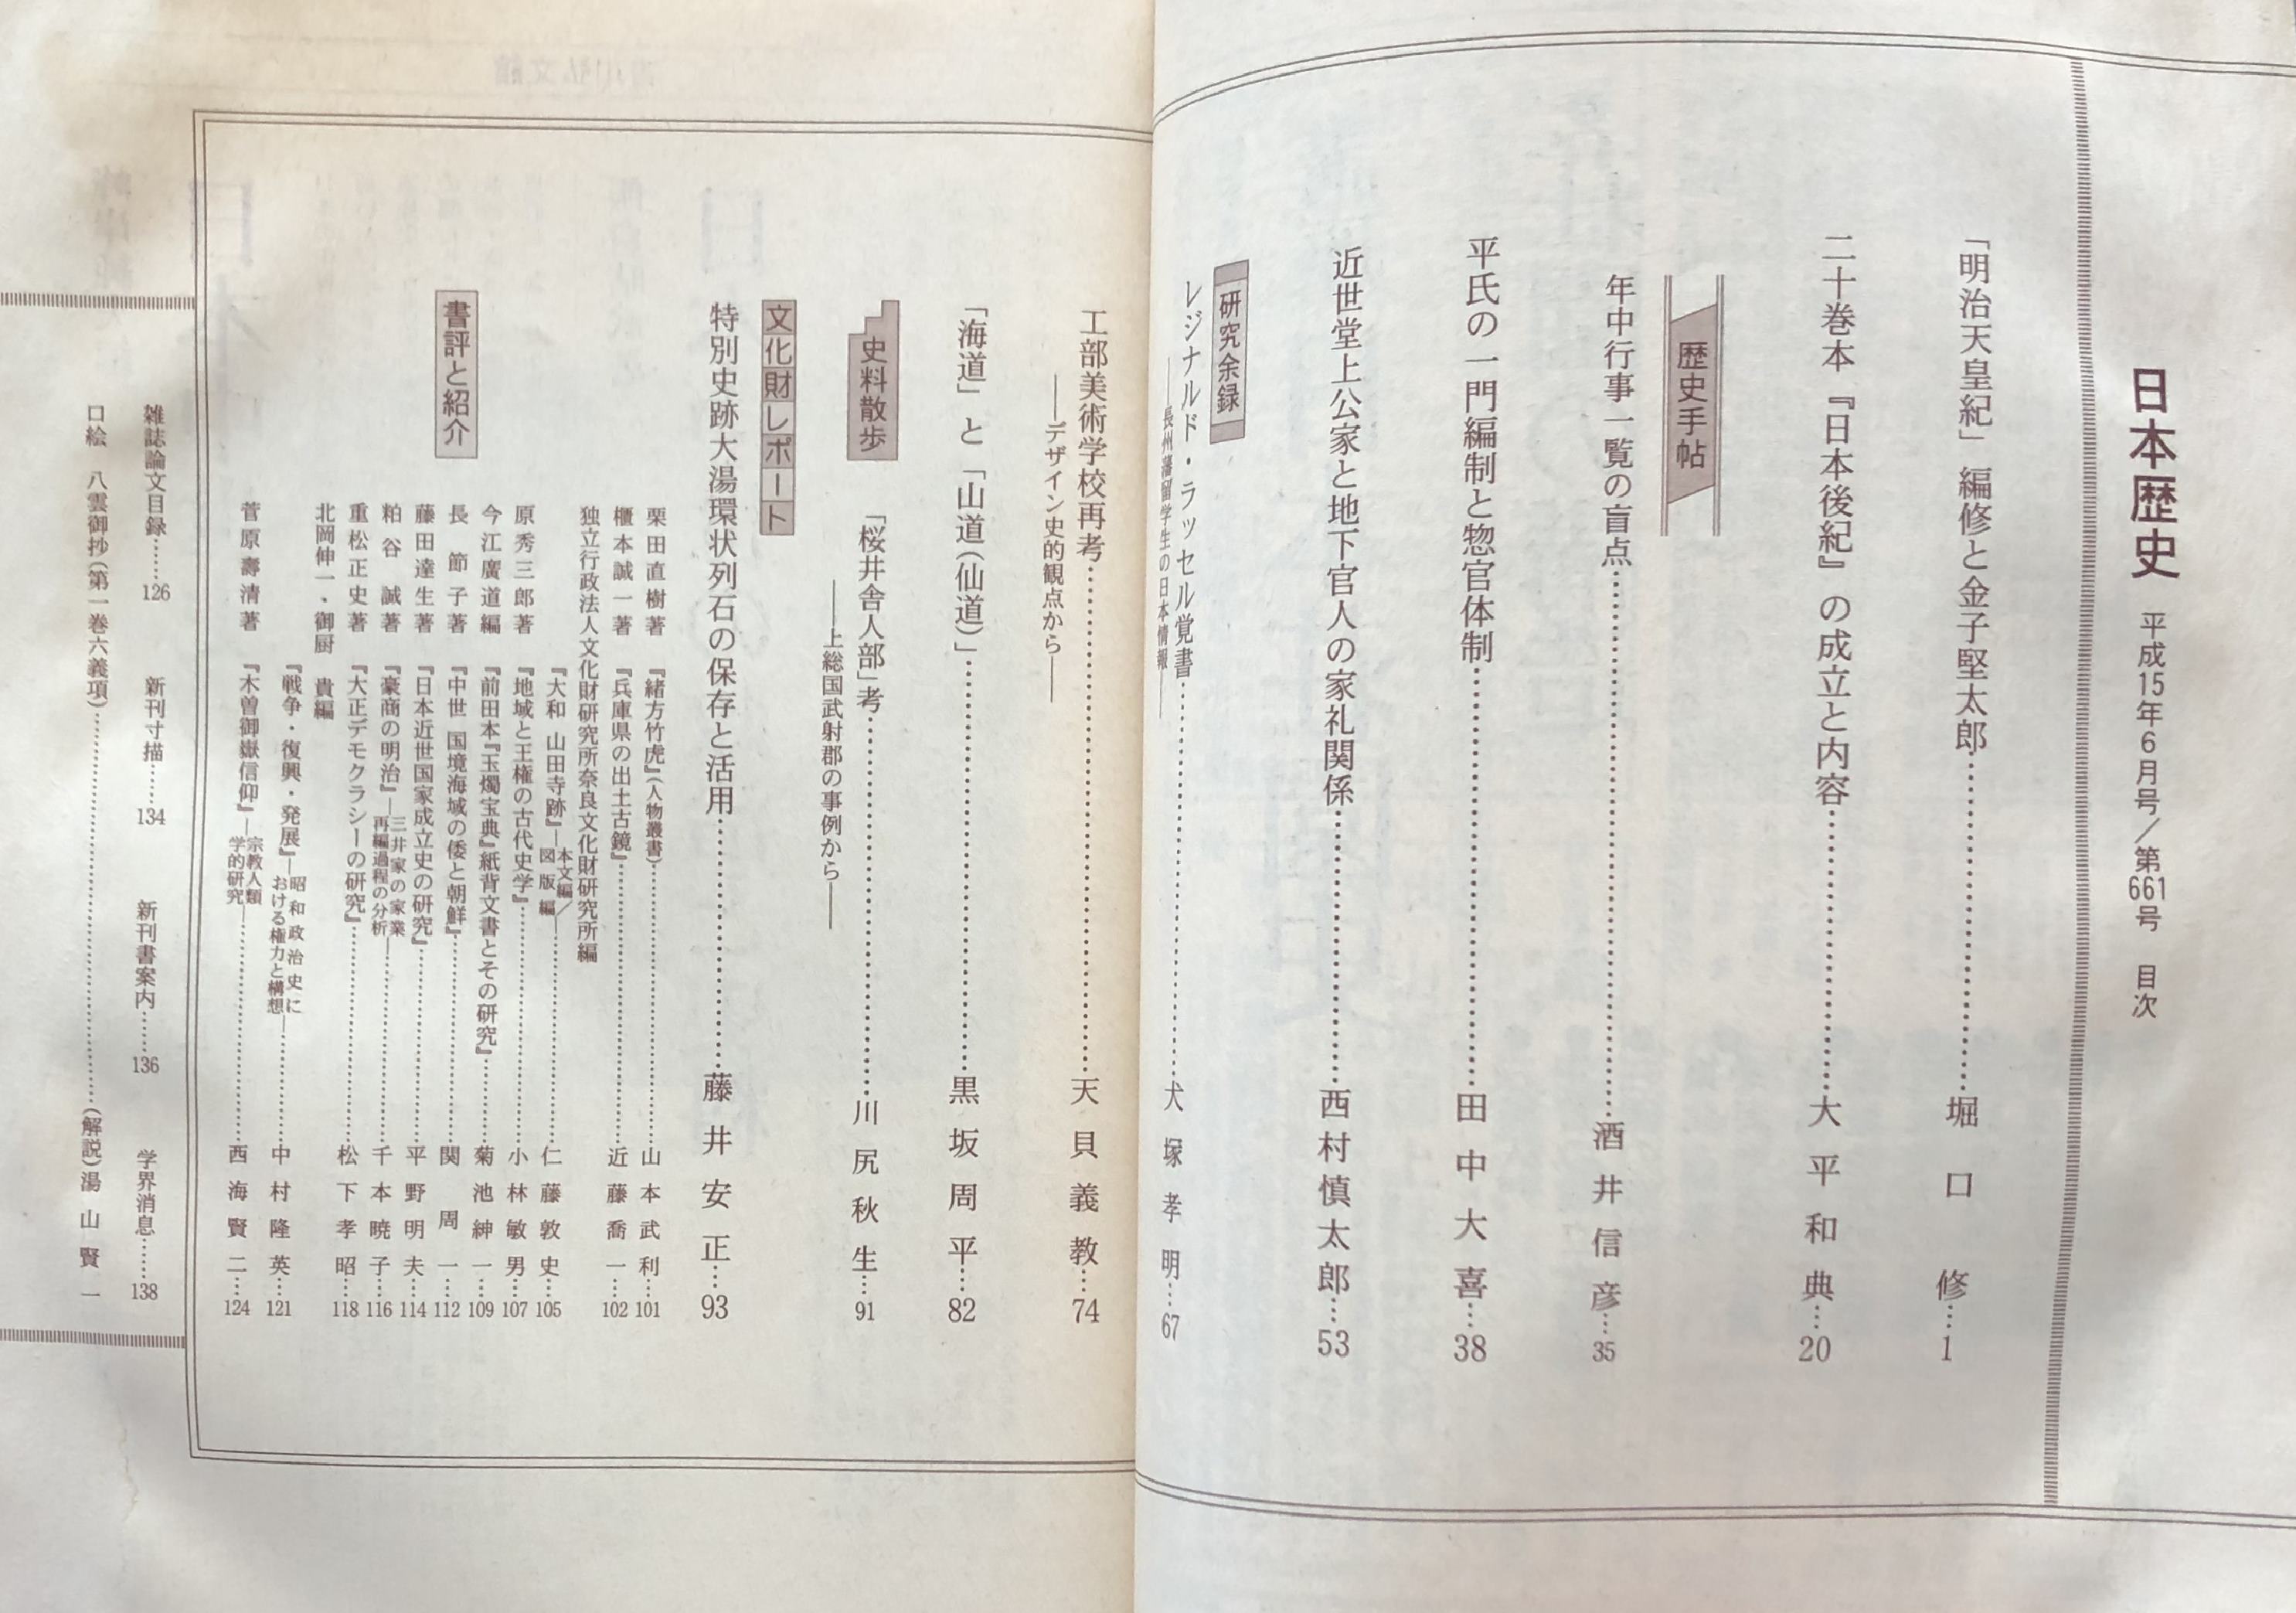 日本歴史 平成15年6月号／第661号 目次
「明治天皇紀」編修と金子堅太郎……堀口 修…1
二十巻本『日本後紀』の成立と内容……大平和典…20
歴史手帖
年中行事一覧の盲点……酒井信彦…35
平氏の一門編制と惣官体制……田中大喜…38
近世堂上公家と地下官人の家礼関係……西村慎太郎…53
研究余録
レジナルド・ラッセル覚書……犬塚孝明…67
――長州藩留学生の日本情報――
工部美術学校再考……天貝義教…74
――デザイン史的観点から――
「海道」と「山道(仙道)」……黒坂周平…82
史料散歩
「桜井舎人部」考……川尻秋生…91
――上総国武射郡の事例から――
文化財レポート
特別史跡大湯環状列石の保存と活用……藤井安正…93
書評と紹介
栗田直樹著『緒方竹虎』(人物叢書)……山本武利…101
櫃本誠一著『兵庫県の出土古鏡』……近藤喬一…102
独立行政法人文化財研究所奈良文化財研究所編
『大和 山田寺跡』―本文編／図版編……仁藤敦史…105
原秀三郎著『地域と王権の古代史学』……小林敏男…107
今江廣道編『前田本『玉燭宝典』紙背文書とその研究』……菊池紳一…109
長 節子著『中世 国境海域の倭と朝鮮』……関 周一…112
藤田達生著『日本近世国家成立史の研究』……平野明夫…114
粕谷 誠著『豪商の明治』―三井家の家業再編過程の分析―……千本暁子…116
重松正史著『大正デモクラシーの研究』……松下孝昭…118
北岡伸一、御厨 貴編
『戦争・復興・発展』―昭和政治史における権力と構想―……中村隆英…121
菅原壽清著『木曽御嶽信仰』―宗教人類学的研究―……西海賢二…124
雑誌論文目録……126 新刊寸描……134 新刊書案内……136 学界消息……138
口絵 八雲御抄(第一巻六義項)……(解説)湯山賢一